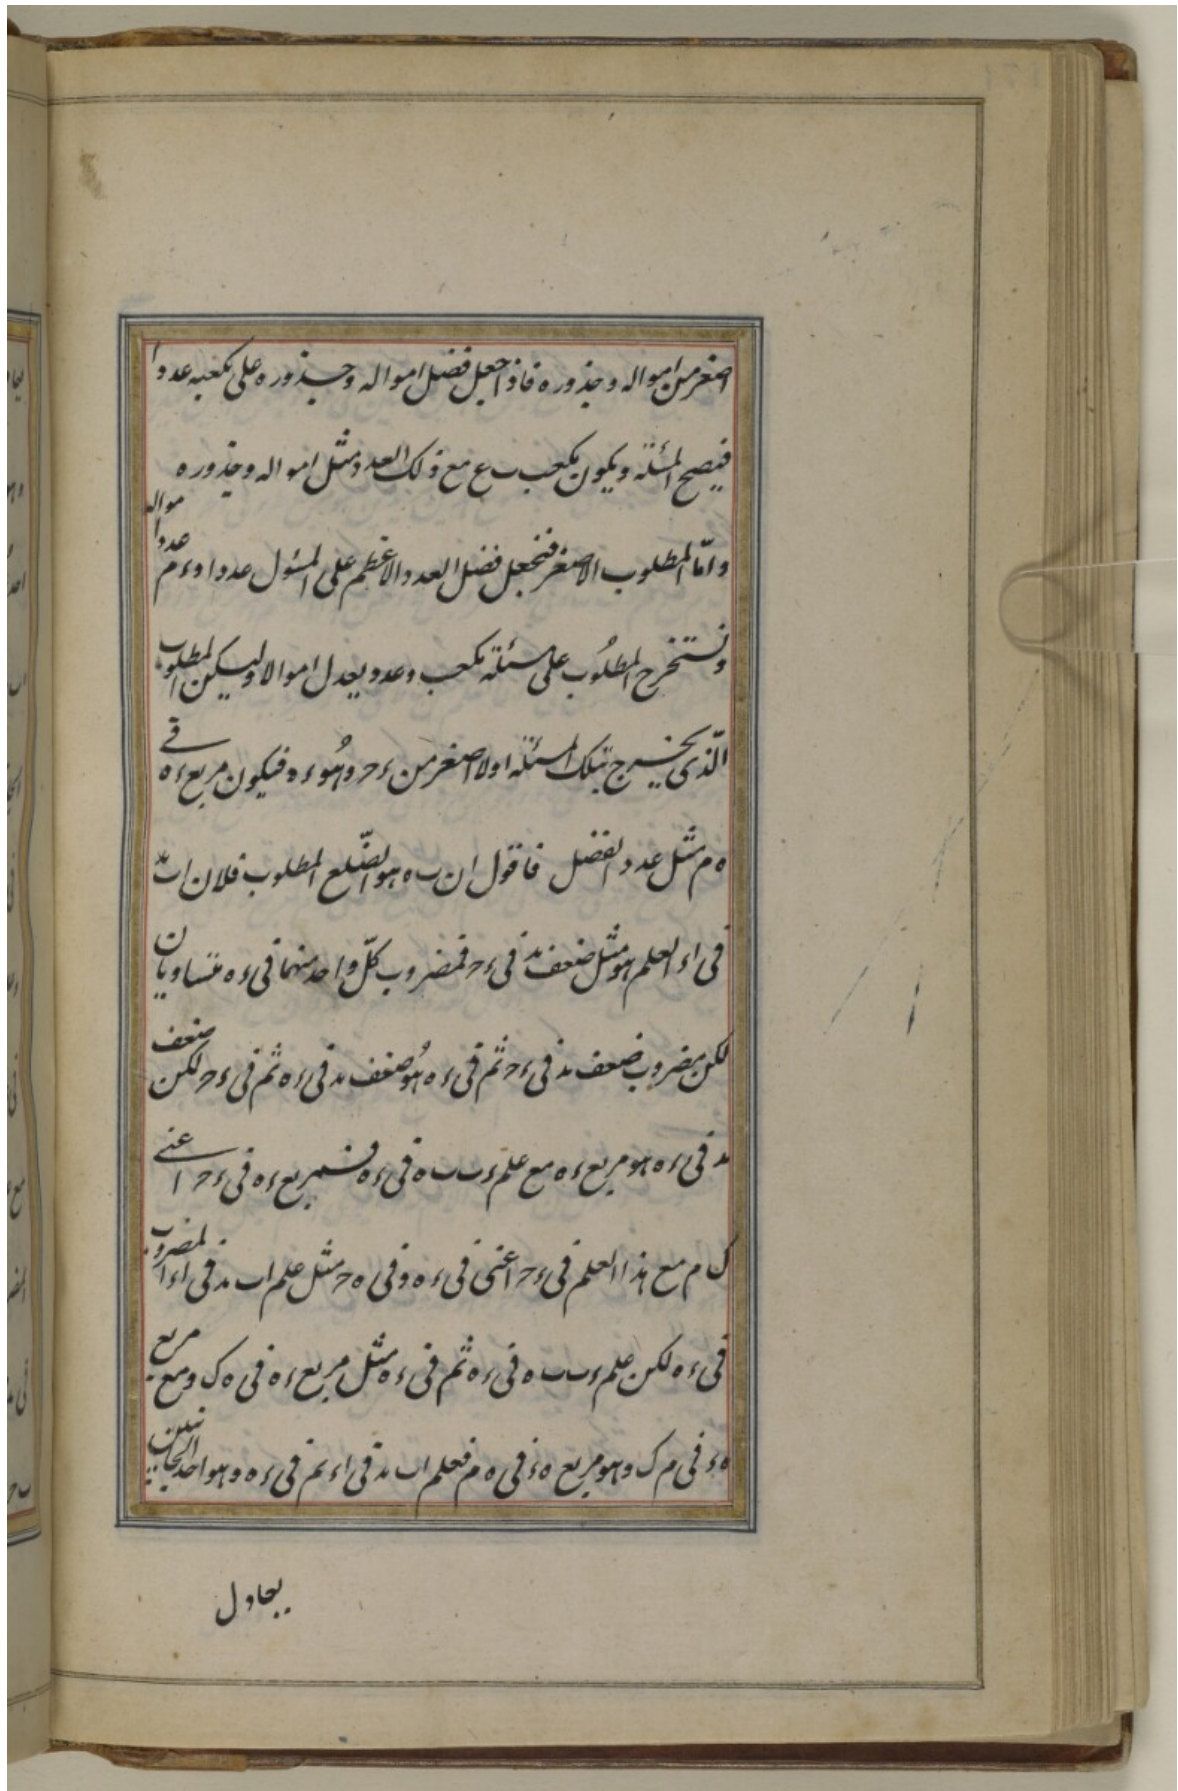 اصغر من امواله وجذوره فاذا جعل فضل امواله وجذوره على مكعبه عددا
فيصح المسئلة ويكون مكعب ب ع مع ذلك العدد مثل امواله وجذوره
واما المطلوب الاصغر فنجعل فضل العدد الاعظم على المسئول عددا و ء م عددا مواله
ونستخرج المطلُوب على مسئلة مكعب وعدد يعدل اموالا وليكن المطلوب
الّذى يخرج بتلك المسئلة اولا اصغر من ء حـ وهُو ء ه فيكون مربع ء ه فى
ه م مثل عدد الفضل فاقول ان ب ه هو الضّلع المطلوب فلان ا ب
فى ا ء العلم هو مثل ضعف ىد فى ء حـ فمضروب كلّ واحد منهما فى ء ه متساويان
لكن مضروب ضعف ىد فى ء حـ ثم فى ء ه هُو ضعف ىد فى ء ه ثم فى ء حـ لكن ضعف
ىد فى ء ه هو مربع ء ه مع علم ء ب ب ه فى ء ه فمربع ء ه فى ء حـ اعنى
ك ا م مع هذا العلم فى ء حـ اعنى فى ء ه وفى ه حـ مثل علم ا ب ىد فى ا ء المضروب
فى ء ه لكن علم ء ب ب ه فى ء ه ثم فى ء ه مثل مربع ء ه فى ه ك ومع مربع
ه ء فى م ك وهو مربع ه ء فى ه م فعلم ا ب ىد فى ا ء ثم فى ء ه وهو احد الجانبين
يعادل